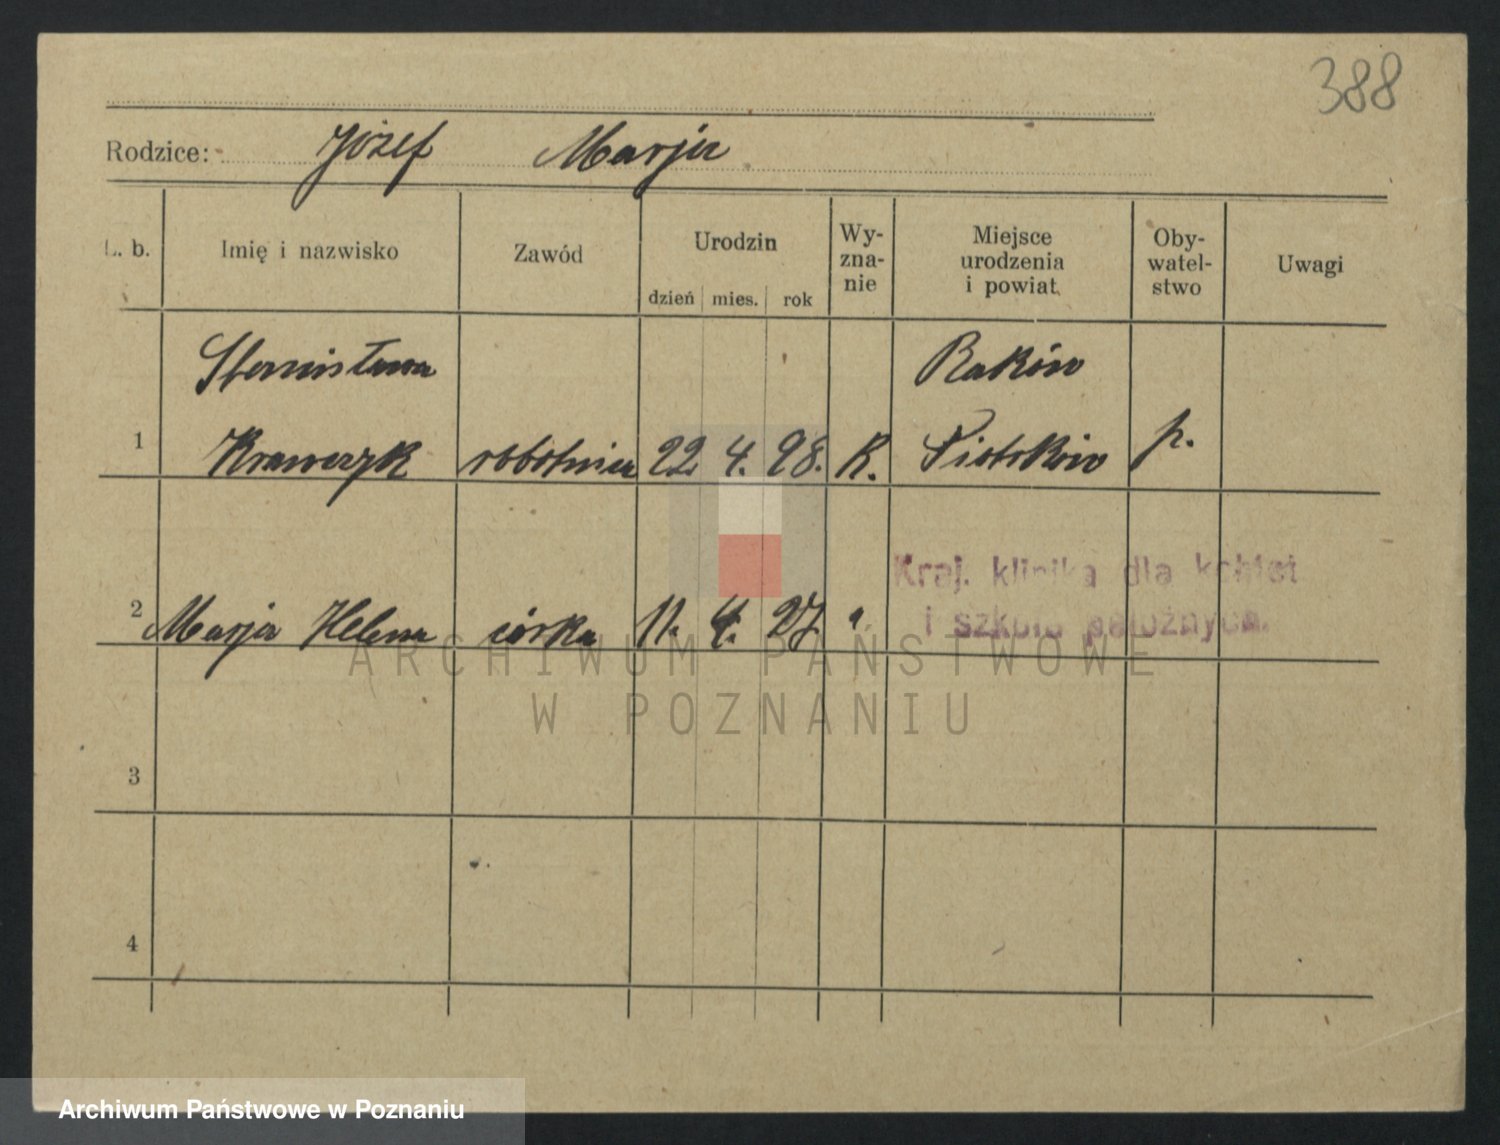 388
Rodzice: Józef Marja
L. b. Imię i nazwisko Zawód Urodzin dzień mies. rok Wy-zna-nie Miejsce urodzenia i powiat Oby-watel-stwo Uwagi
Stanisława Raków
1 Krawczyk robotnica 22 4. 98. K. Piotrków p.
Kraj. klinika dla kobiet
i szkoła położnych.
2 Marja Helena córka 11. 4. 27 "
ARCHIWUM PAŃSTWOWE
W POZNANIU
3
4
Archiwum Państwowe w Poznaniu